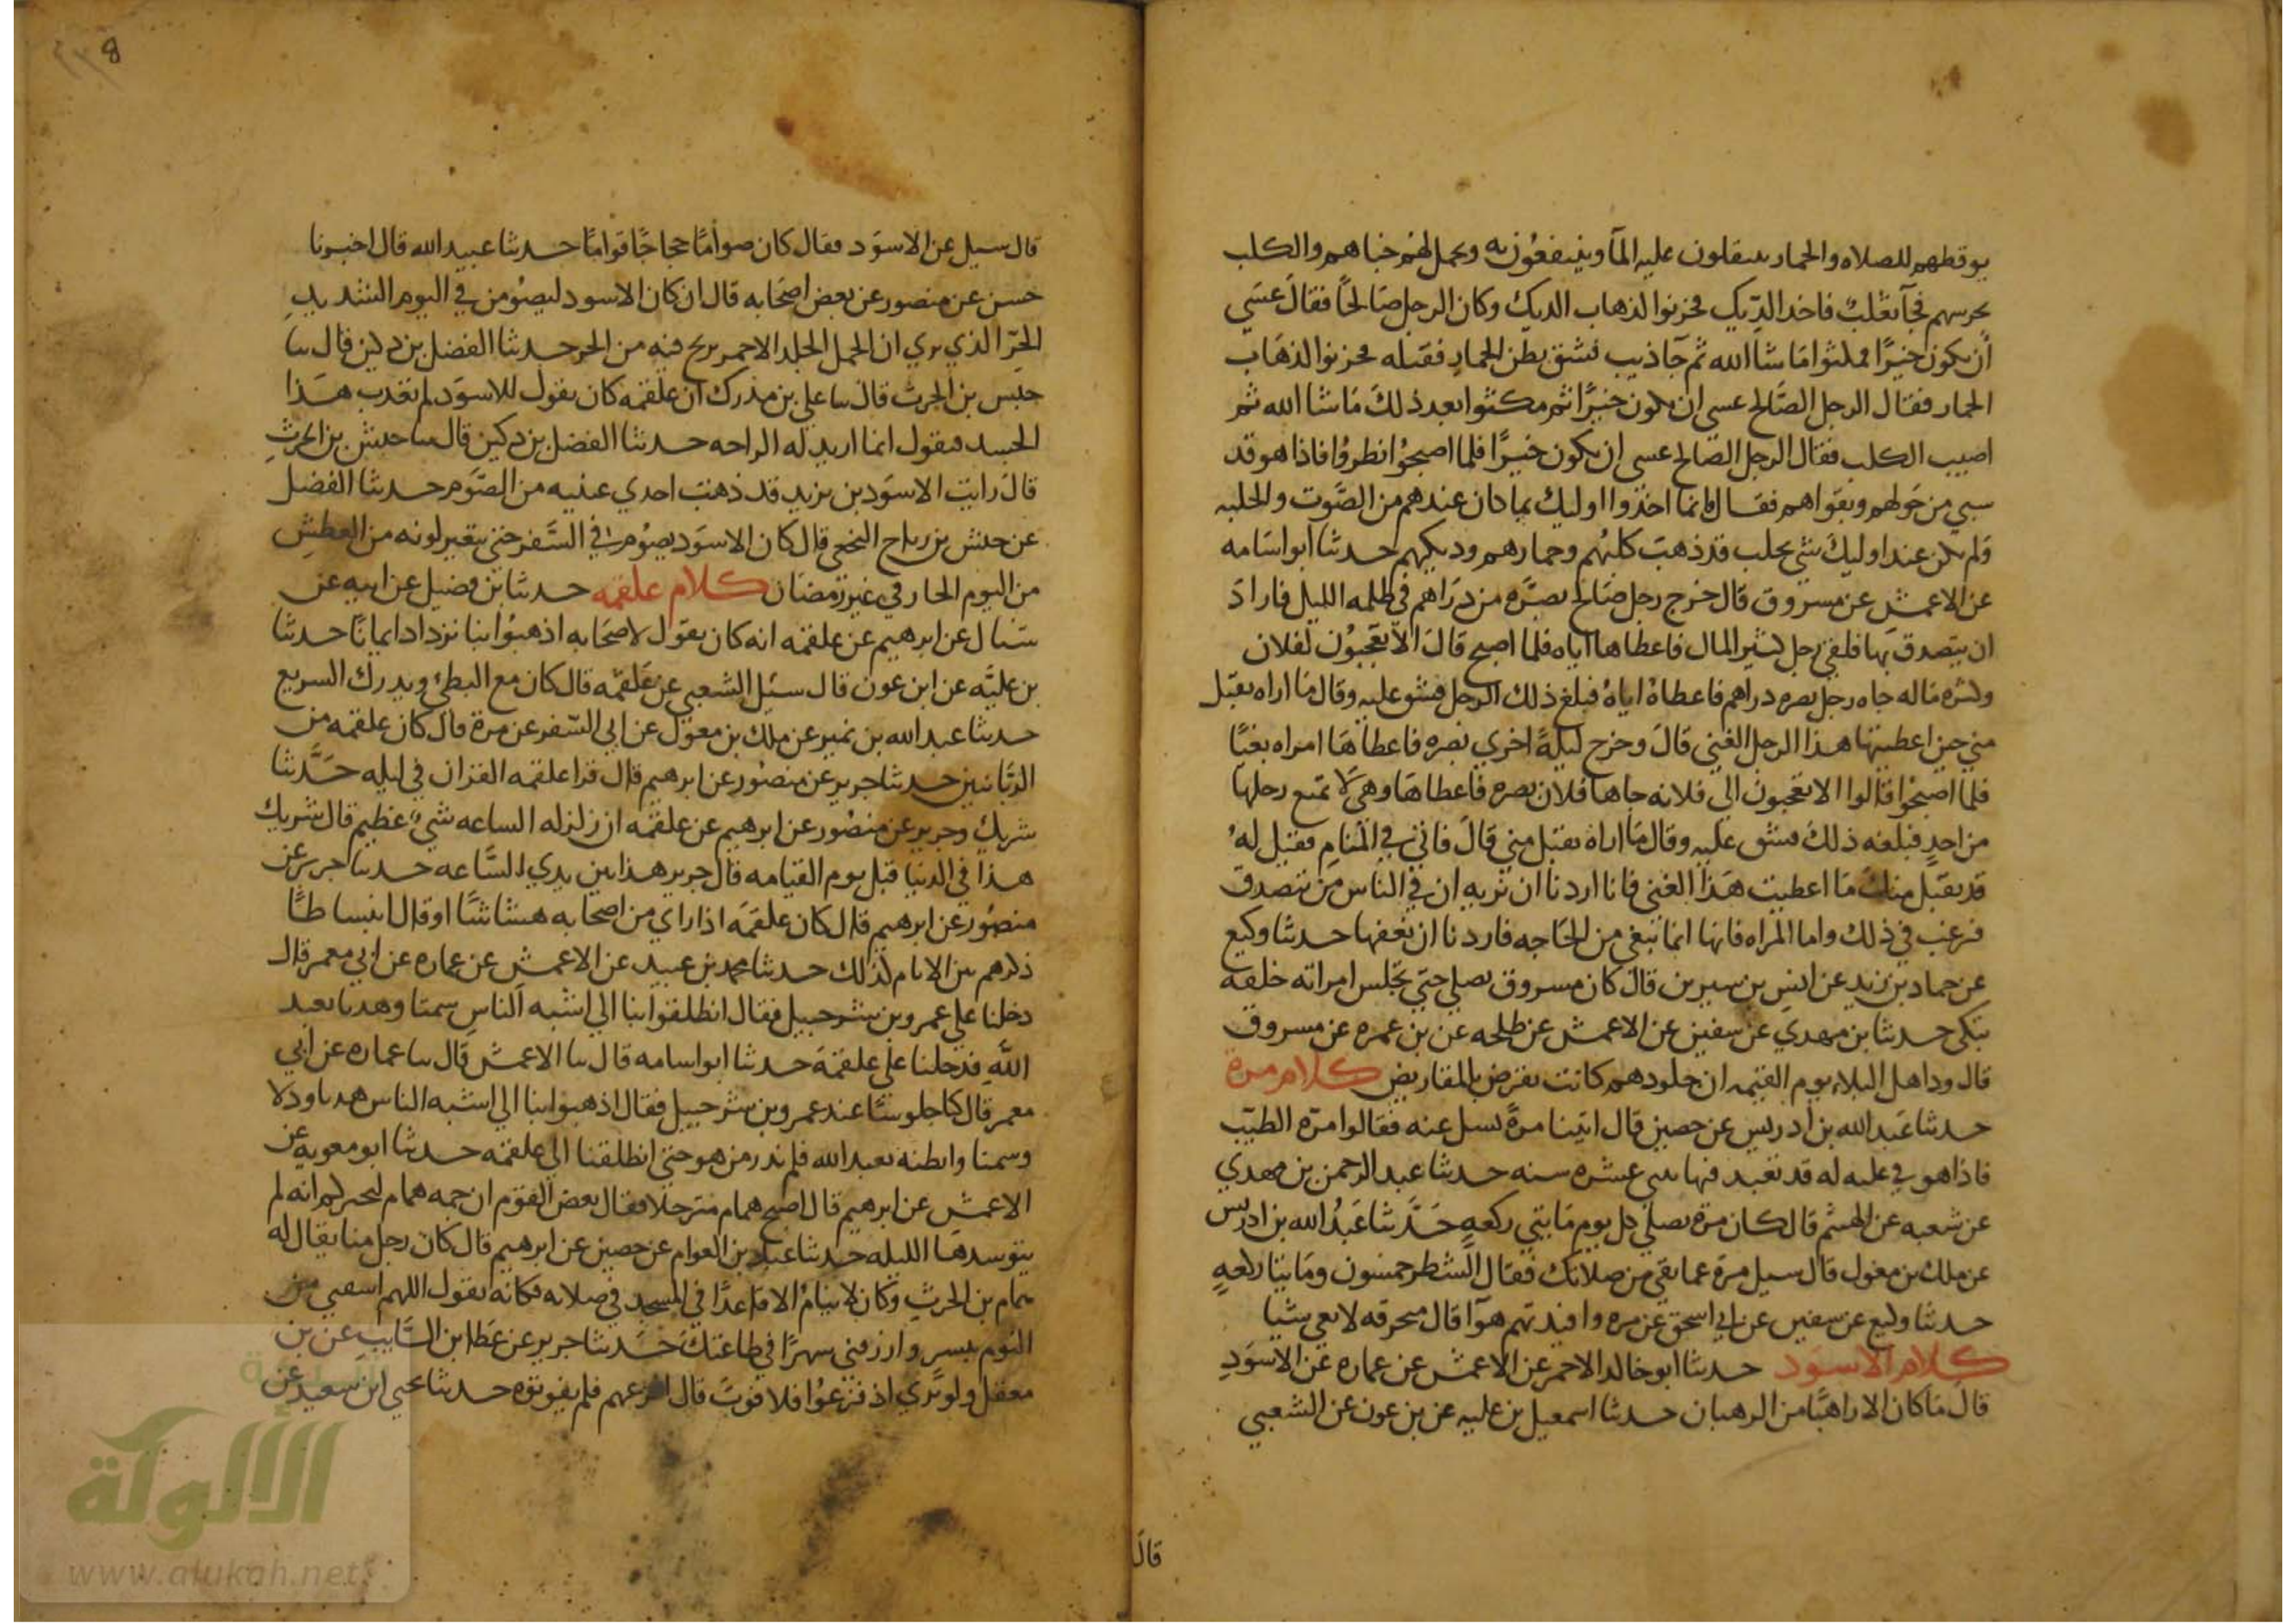 يوقظهم للصلاه والحمار ينقلون عليه المآ وينتفعون به ويحمل لهم خباهم والكلب
يحرسهم فجآ ثعلب فاخذ الديك فحزنوا لذهاب الديك وكان الرجل صالحًا فقال عسى
أن يكون خيرًا فمكثوا ما شا الله ثم جآ ذيب فشق بطن الحمار فقتله فحزنوا لذهاب
الحمار فقال الرجل الصالح عسى ان يكون خيرًا ثم مكثوا بعد ذلك ما شا الله ثم
اصيب الكلب فقال الرجل الصالح عسى ان يكون خيرًا فلما اصبحوا نظروا فاذا هو قد
سبي من حولهم وبقوا هم فقال فانما اخذوا اوليك بما كان عندهم من الصوت والجلبه
ولم يكن عند اوليك شي يجلب قد ذهب كلبهم وحمارهم وديكهم حدثنا ابو اسامه
عن الاعمش عن مسروق قال خرج رجل صالح بصره من دراهم في ظلمه الليل فاراد
ان يتصدق بها فلقي رجل كثير المال فاعطاها اياه فلما اصبح قال الا تعجبون لفلان
وكثره ماله جاه رجل بصره دراهم فاعطاه اياه فبلغ ذلك الرجل فشق عليه وقال ما اراه تقبل
مني حين اعطيتها هذا الرجل الغني قال وخرج ليلة اخري بصره فاعطاها امراه بغيًا
فلما اصبحوا قالوا الا تعجبون الي فلانه جاها فلان بصره فاعطاها وهي لا تمنع رجلها
من احد فبلغه ذلك فشق عليه وقال ما اراه تقبل مني قال فاتي في المنام فقيل له
قد تقبل منك ما اعطيت هذا الغني فانا اردنا ان نريه ان في الناس من يتصدق
فرغب في ذلك واما المراه فانها انما تبغي من الحاجه فاردنا ان نعفها حدثنا وكيع
عن حماد بن زيد عن انس بن سيرين قال كان مسروق يصلي حتى تجلس امراته خلفه
تبكي حدثنا بن مهدي عن سفين عن الاعمش عن طلحه عن بن عمره عن مسروق
قال ود اهل البلاء يوم القيمه ان جلودهم كانت تقرض بالمقاريض كلام مرة
حدثنا عبد الله بن ادريس عن حصين قال اتينا مرة نسل عنه فقالوا مرة الطيب
فاذا هو في عليه له قد تعبد فيها ثنتي عشره سنه حدثنا عبد الرحمن بن مهدي
عن شعبه عن الهيثم قال كان مرة يصلي كل يوم مايتي ركعه حدثنا عبد الله بن ادريس
عن ملك بن مغول قال سيل مرة عما بقي من صلاتك فقال الشطر خمسون ومايتا ركعه
حدثنا وكيع عن سفين عن ابي اسحق عن مره وافيدتهم هوآ قال منخرقه لا تعي شيا
كلام الاسود حدثنا ابو خالد الاحمر عن الاعمش عن عماره عن الاسود
قال ما كان الا راهبًا من الرهبان حدثنا اسمعيل بن عليه عن بن عون عن الشعبي
قال
قال سيل عن الاسود فقال كان صوامًا حجاجًا قوامًا حدثنا عبيد الله قال اخبرنا
حسن عن منصور عن بعض اصحابه قال ان كان الاسود ليصومن في اليوم الشديد
الحر الذي يري ان الجمل الجلد الاحمر يرنح فيه من الحر حدثنا الفضل بن دكين قال سا
حنش بن الحرث قال سا علي بن مدرك ان علقمه كان يقول للاسود لم تعذب هذا
الجسد فيقول انما اريد له الراحه حدثنا الفضل بن دكين قال سا حنش بن الحرث
قال رايت الاسود بن يزيد قد ذهبت احدي عينيه من الصوم حدثنا الفضل
عن حنش بن رباح النخعي قال كان الاسود يصوم في السفر حتى يتغير لونه من العطش
من اليوم الحار في غير رمضان كلام علقمه حدثنا بن فضيل عن ابيه عن
شباك عن ابرهيم عن علقمه انه كان يقول لاصحابه اذهبوا بنا نزداد ايمانًا حدثنا
بن عليه عن ابن عون قال سئل الشعبي عن علقمه قال كان مع البطي ويدرك السريع
حدثنا عبد الله بن نمير عن ملك بن مغول عن ابي السفر عن مرة قال كان علقمه من
الربانيين حدثنا جرير عن منصور عن ابرهيم قال قرا علقمه القران في ليله حدثنا
شريك وجرير عن منصور عن ابرهيم عن علقمه ان زلزله الساعه شيء عظيم قال شريك
هذا في الدنيا قبل يوم القيامه قال جرير هذا بين يدي الساعه حدثنا جرير عن
منصور عن ابرهيم قال كان علقمه اذا راي من اصحابه هشاشًا او قال انبساطًا
ذكرهم بين الايام كذلك حدثنا محمد بن عبيد عن الاعمش عن عماره عن ابي معمر قال
دخلنا علي عمرو بن شرحبيل فقال انطلقوا بنا الي اشبه الناس سمتا وهديا بعبد
الله فدخلنا علي علقمه حدثنا ابو اسامه قال سا الاعمش قال سا عماره عن ابي
معمر قال كنا جلوسًا عند عمرو بن شرحبيل فقال اذهبوا بنا الي اشبه الناس هديا ودلا
وسمتا وابطنه بعبد الله فلم ندر من هو حتى انطلقنا الي علقمه حدثنا ابو معويه عن
الاعمش عن ابرهيم قال اصبح همام مترجلا فقال بعض القوم ان جمه همام لتخبركم انه لم
يتوسدها الليله حدثنا عباد بن العوام عن حصين عن ابرهيم قال كان رجل منا يقال له
همام بن الحرث وكان لا ينام الا قاعدًا في المسجد في صلاته فكانه يقول اللهم اشفني من
النوم بيسير وارزقني سهرًا في طاعتك حدثنا جرير عن عطا ابن السايب عن بن
معقل ولو تري اذ فزعوا فلا فوت قال افزعهم فلم يفوتوه حدثنا يحيي ابن سعيد عن
الألوكة
www.alukah.net